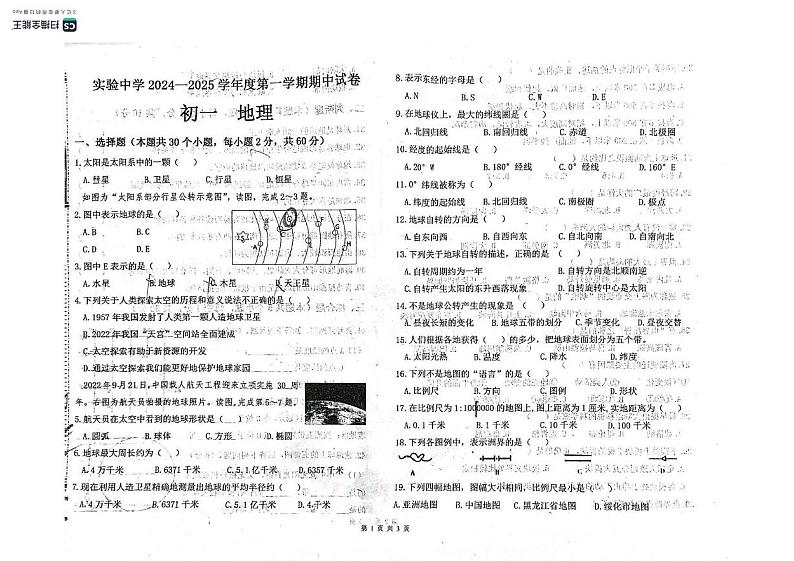 CS 扫描全能王
3亿人都在用的扫描App
实验中学2024—2025学年度第一学期期中试卷
初一 地理
一、选择题（本题共30个小题，每小题2分，共60分）
1.太阳是太阳系中的一颗（ ）
A.彗星 B.卫星 C.行星 D.恒星
如图为“太阳系部分行星公转示意图”，读图，完成2～3题。
2.图中表示地球的是（ ）
A.B B.C
C.D D.E
3.图中E表示的是（ ）
A.水星 B.地球 C.木星 D.天王星
4.下列关于人类探索太空的历程和意义说法不正确的是（ ）
A.1957年我国发射了人类第一颗人造地球卫星
B.2022年我国“天宫”空间站全面建成
C.太空探索有助于新资源的开发
D.通过太空探索我们能更好地保护地球家园
2022年9月21日，中国载人航天工程迎来立项实施30周
年。右图为航天员拍摄的地球照片。读图，完成第5～7题。
5.航天员在太空中看到的地球形状是（ ）
A.圆弧 B.球体 C.方形 D.椭圆
6.地球最大周长约为（ ）
A.4万千米 B.6371千米 C.5.1亿千米 D.6357千米
7.现在利用人造卫星精确地测量出地球的平均半径约（ ）
A.4万千米 B.6371千米 C.5.1亿千米 D.4千米
8.表示东经的字母是（ ）
A.N B.S C.W D.E
9.在地球仪上，最大的纬线圈是（ ）
A.北回归线 B.南回归线 C.赤道 D.北极圈
10.经度的起始线是（ ）
A.20°W B.180°经线 C.0°经线 D.160°E
11.0°纬线被称为（ ）
A.纬度的起始线 B.北回归线 C.南极圈 D.极点
12.地球自转的方向是（ ）
A.自东向西 B.自西向东 C.自北向南 D.自南向北
13.下列关于地球自转的描述，正确的是（ ）
A.自转周期约为一年 B.自转方向是北顺南逆
C.自转产生太阳的东升西落现象 D.自转旋转中心是太阳
14.不是地球公转产生的现象是（ ）
A.昼夜长短的变化 B.地球五带的划分 C.季节变化 D.昼夜交替
15.人们根据各地获得（ ）的多少，把地球表面划分为五个带。
A.太阳光热 B.温度 C.降水 D.纬度
16.下列不是地图的“语言”的是（ ）
A.比例尺 B.方向 C.图例 D.形状
17.在比例尺为1:1000000的地图上，图上距离为1厘米，实地距离为（ ）
A.0.1千米 B.1千米 C.10千米 D.100千米
18.下列各图例中，表示洲界的是（ ）
A B C D
19.下列四幅地图，图幅大小相同，比例尺最小是（ ）
A.亚洲地图 B.中国地图 C.黑龙江省地图 D.绥化市地图
第1页共3页